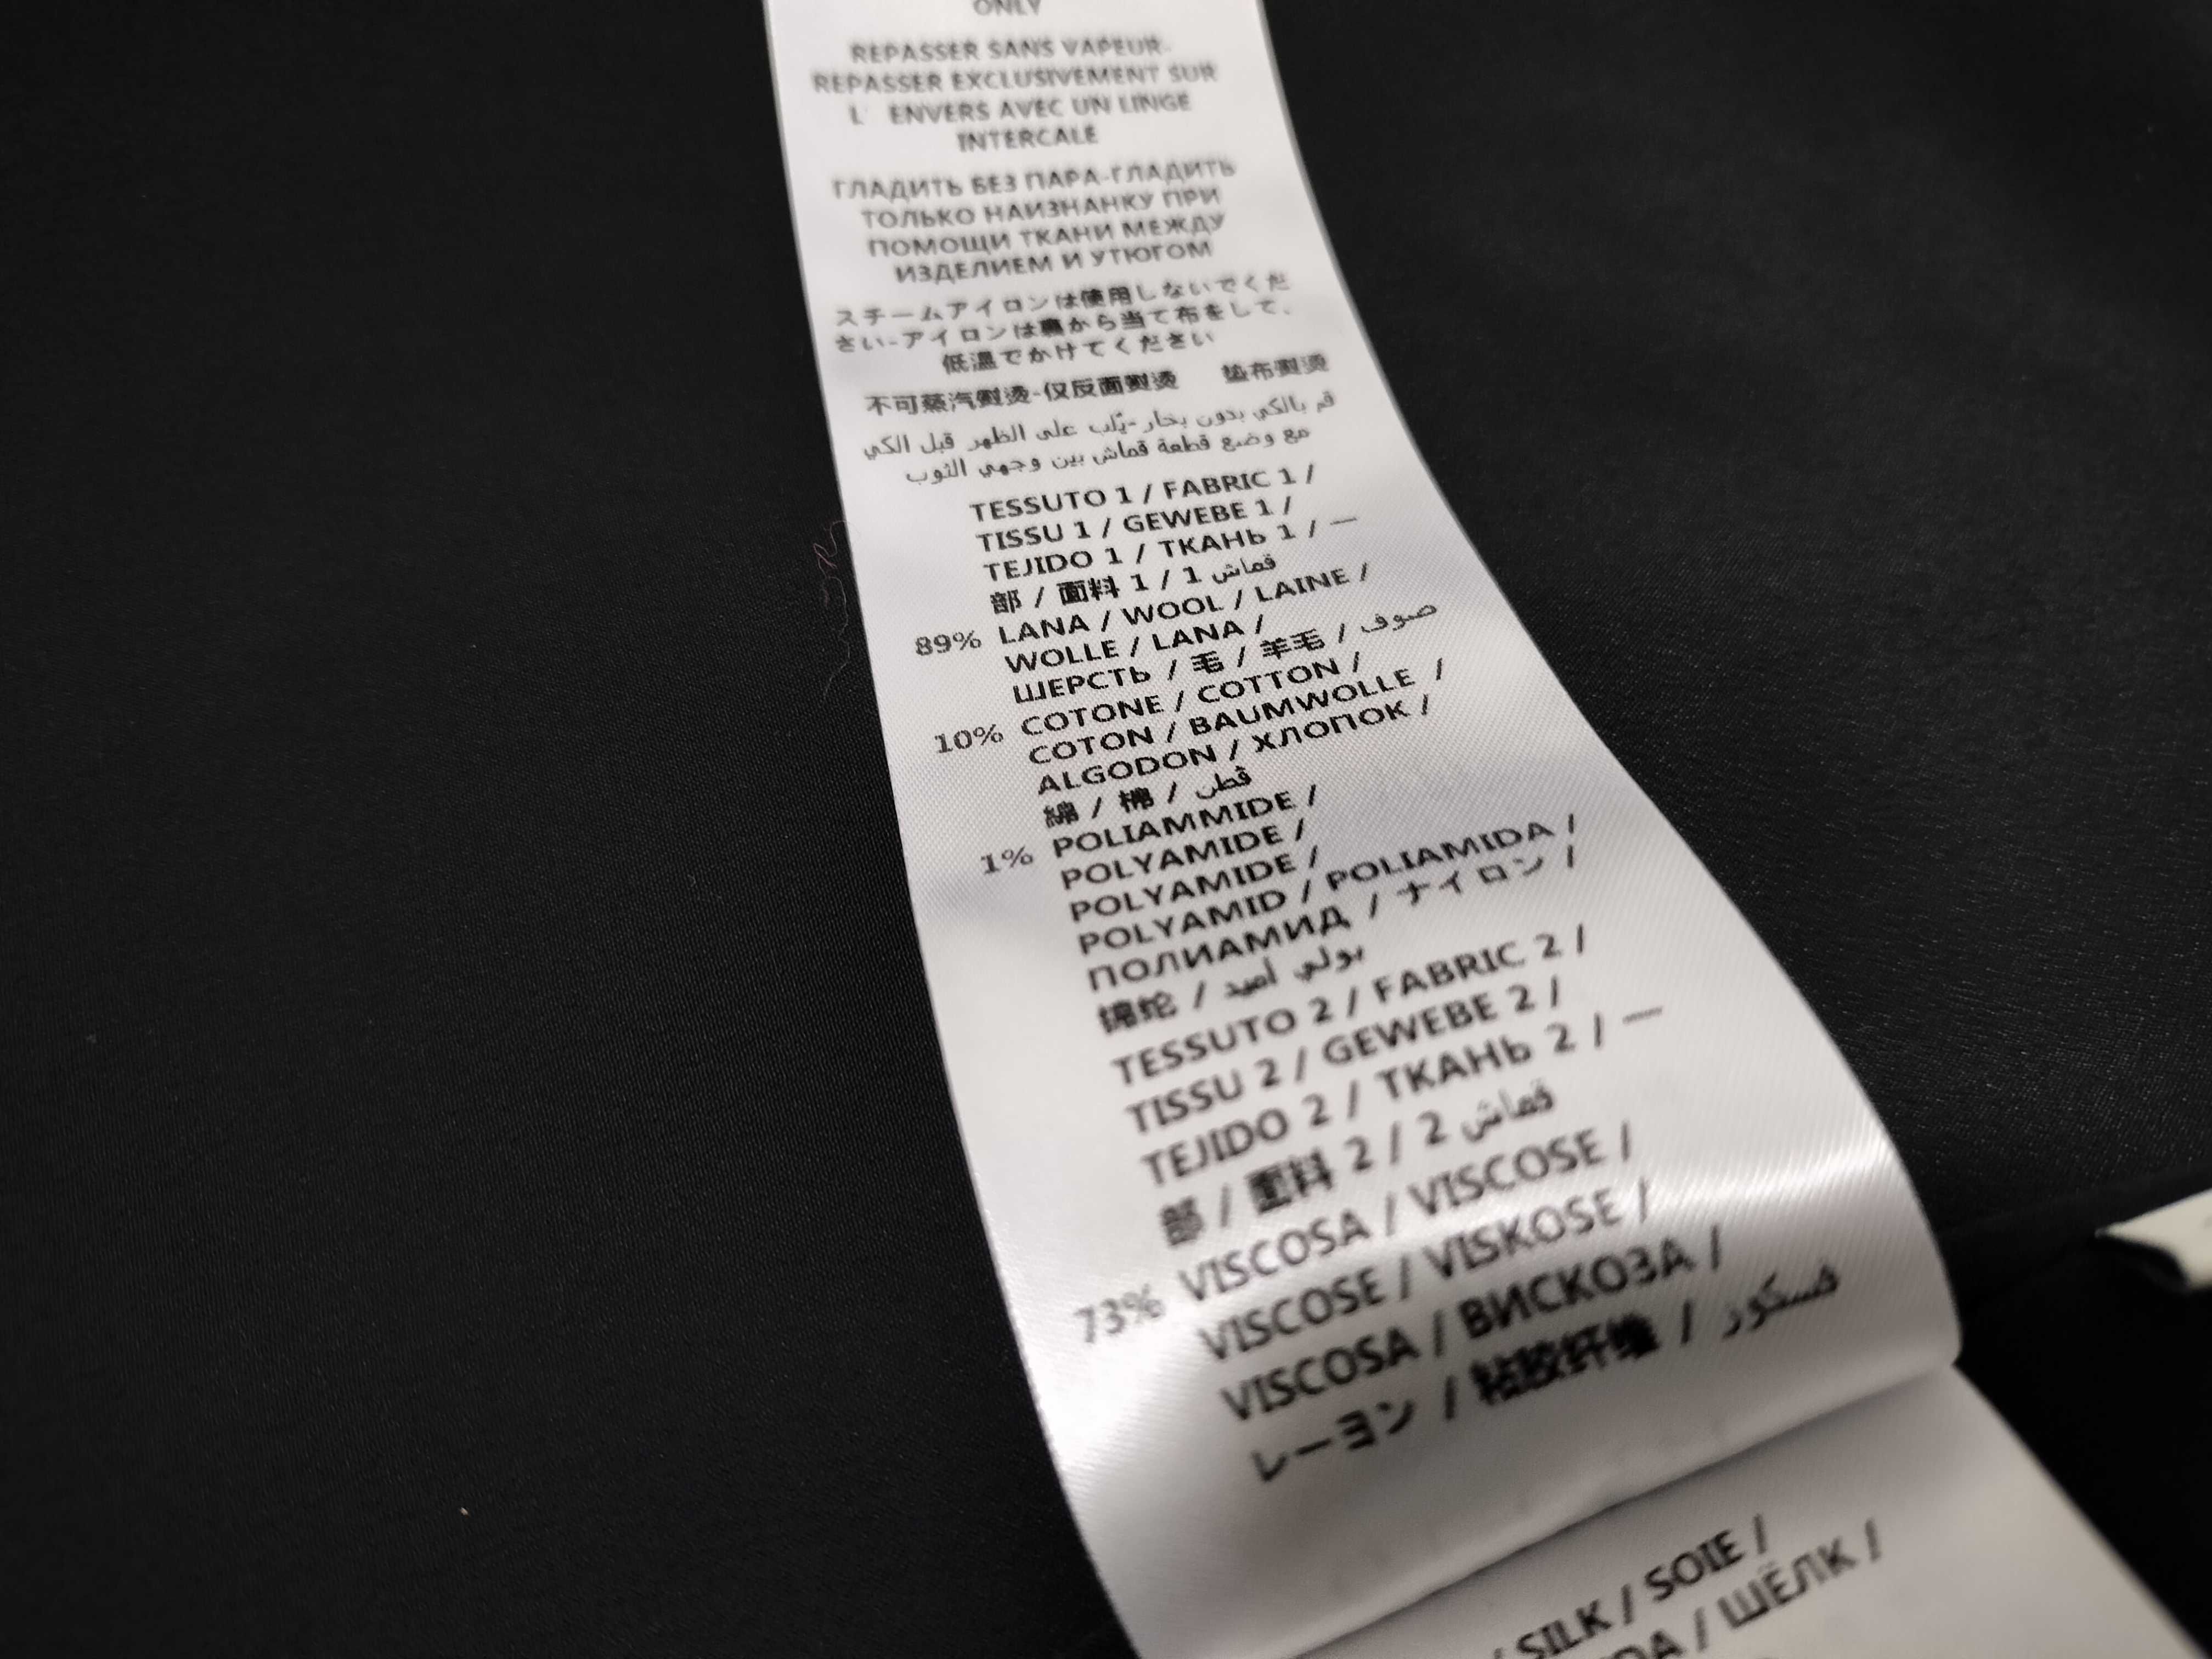 ONLY
REPASSER SANS VAPEUR-
REPASSER EXCLUSIVEMENT SUR
L' ENVERS AVEC UN LINGE
INTERCALE
ГЛАДИТЬ БЕЗ ПАРА-ГЛАДИТЬ
ТОЛЬКО НАИЗНАНКУ ПРИ
ПОМОЩИ ТКАНИ МЕЖДУ
ИЗДЕЛИЕМ И УТЮГОМ
スチームアイロンは使用しないでくだ
さい-アイロンは裏から当て布をして、
低温でかけてください
不可蒸汽熨烫-仅反面熨烫 垫布熨烫
قم بالكي بدون بخار-يُلب على الظهر قبل الكي
مع وضع قطعة قماش بين وجهي الثوب
TESSUTO 1 / FABRIC 1 /
TISSU 1 / GEWEBE 1 /
TEJIDO 1 / ТКАНЬ 1 / 一
部 / 面料 1 / 1 قماش
89% LANA / WOOL / LAINE /
WOLLE / LANA /
ШЕРСТЬ / 毛 / 羊毛 / صوف
10% COTONE / COTTON /
COTON / BAUMWOLLE /
ALGODON / ХЛОПОК /
綿 / 棉 / قطن
1% POLIAMMIDE /
POLYAMIDE /
POLYAMIDE /
POLYAMID / POLIAMIDA /
ПОЛИАМИД / ナイロン /
锦纶 / بولي أميد
TESSUTO 2 / FABRIC 2 /
TISSU 2 / GEWEBE 2 /
TEJIDO 2 / ТКАНЬ 2 / 一
部 / 面料 2 / 2 قماش
73% VISCOSA / VISCOSE /
VISCOSE / VISKOSE /
VISCOSA / ВИСКОЗА /
レーヨン / 粘胶纤维 / فسكوز
/ SILK / SOIE /
DA / ШЁЛК /